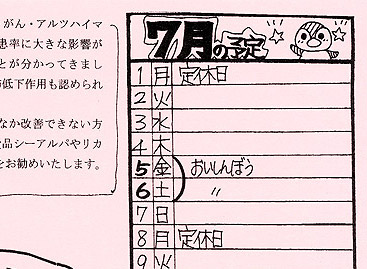 がん・アルツハイマ
患率に大きな影響が
とが分かってきまし
低下作用も認められ
なか改善できない方
品シーアルパやリカ
をお勧めいたします。
7月の予定
1 月 定休日
2 火
3 水
4 木
5 金 おいしんぼう
6 土 〃
7 日
8 月 定休日
9 火